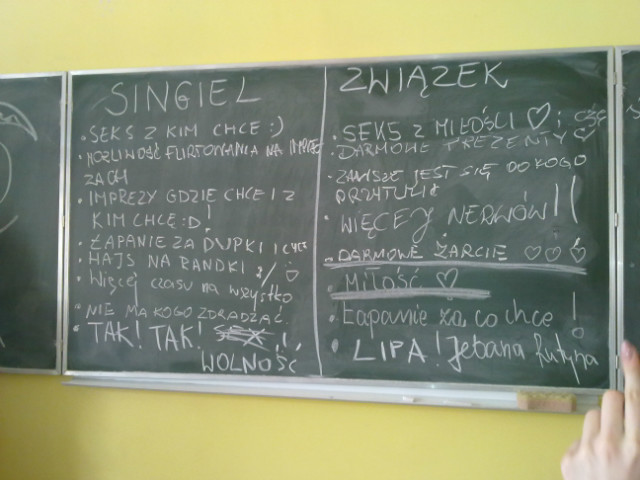 SINGIEL
• SEKS Z KIM CHCE :)
• MOŻLIWOŚĆ FLIRTOWANIA NA IMPRE
ZACH
• IMPREZY GDZIE CHCE I Z
KIM CHCE :D!
• ŁAPANIE ZA DUPKI I
• HAJS NA RANDKI
• Więcej czasu na wszystko
• NIE MA KOGO ZDRADZAĆ.
• TAK! TAK! SEX
WOLNOŚĆ
ZWIĄZEK
• SEKS Z MIŁOŚCI ♡;
• DARMOWE PREZENTY ♡
• ZAWSZE JEST SIĘ DO KOGO
PRZYTULIĆ
• WIĘCEJ NERWÓW!!
• DARMOWE ŻARCIE ♡♡♡
• MIŁOŚĆ ♡
• Łapanie za, co chcę !
• LIPA! Jebana Rutyna